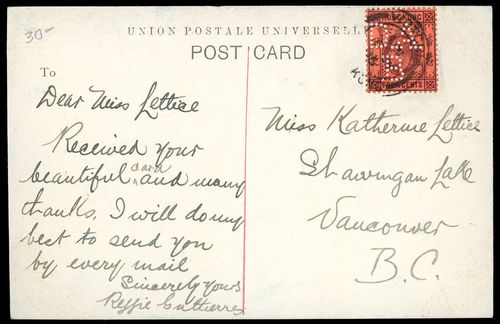 30-
UNION POSTALE UNIVERSELLE
POST CARD
HONGKONG
FOUR CENTS
To
Dear Miss Lettice
Received your
beautiful card and many
thanks. I will do my
best to send you
by every mail
Sincerely yours
Miss Katherine Lettice
Shawingan Lake
Vancouver
B.C.